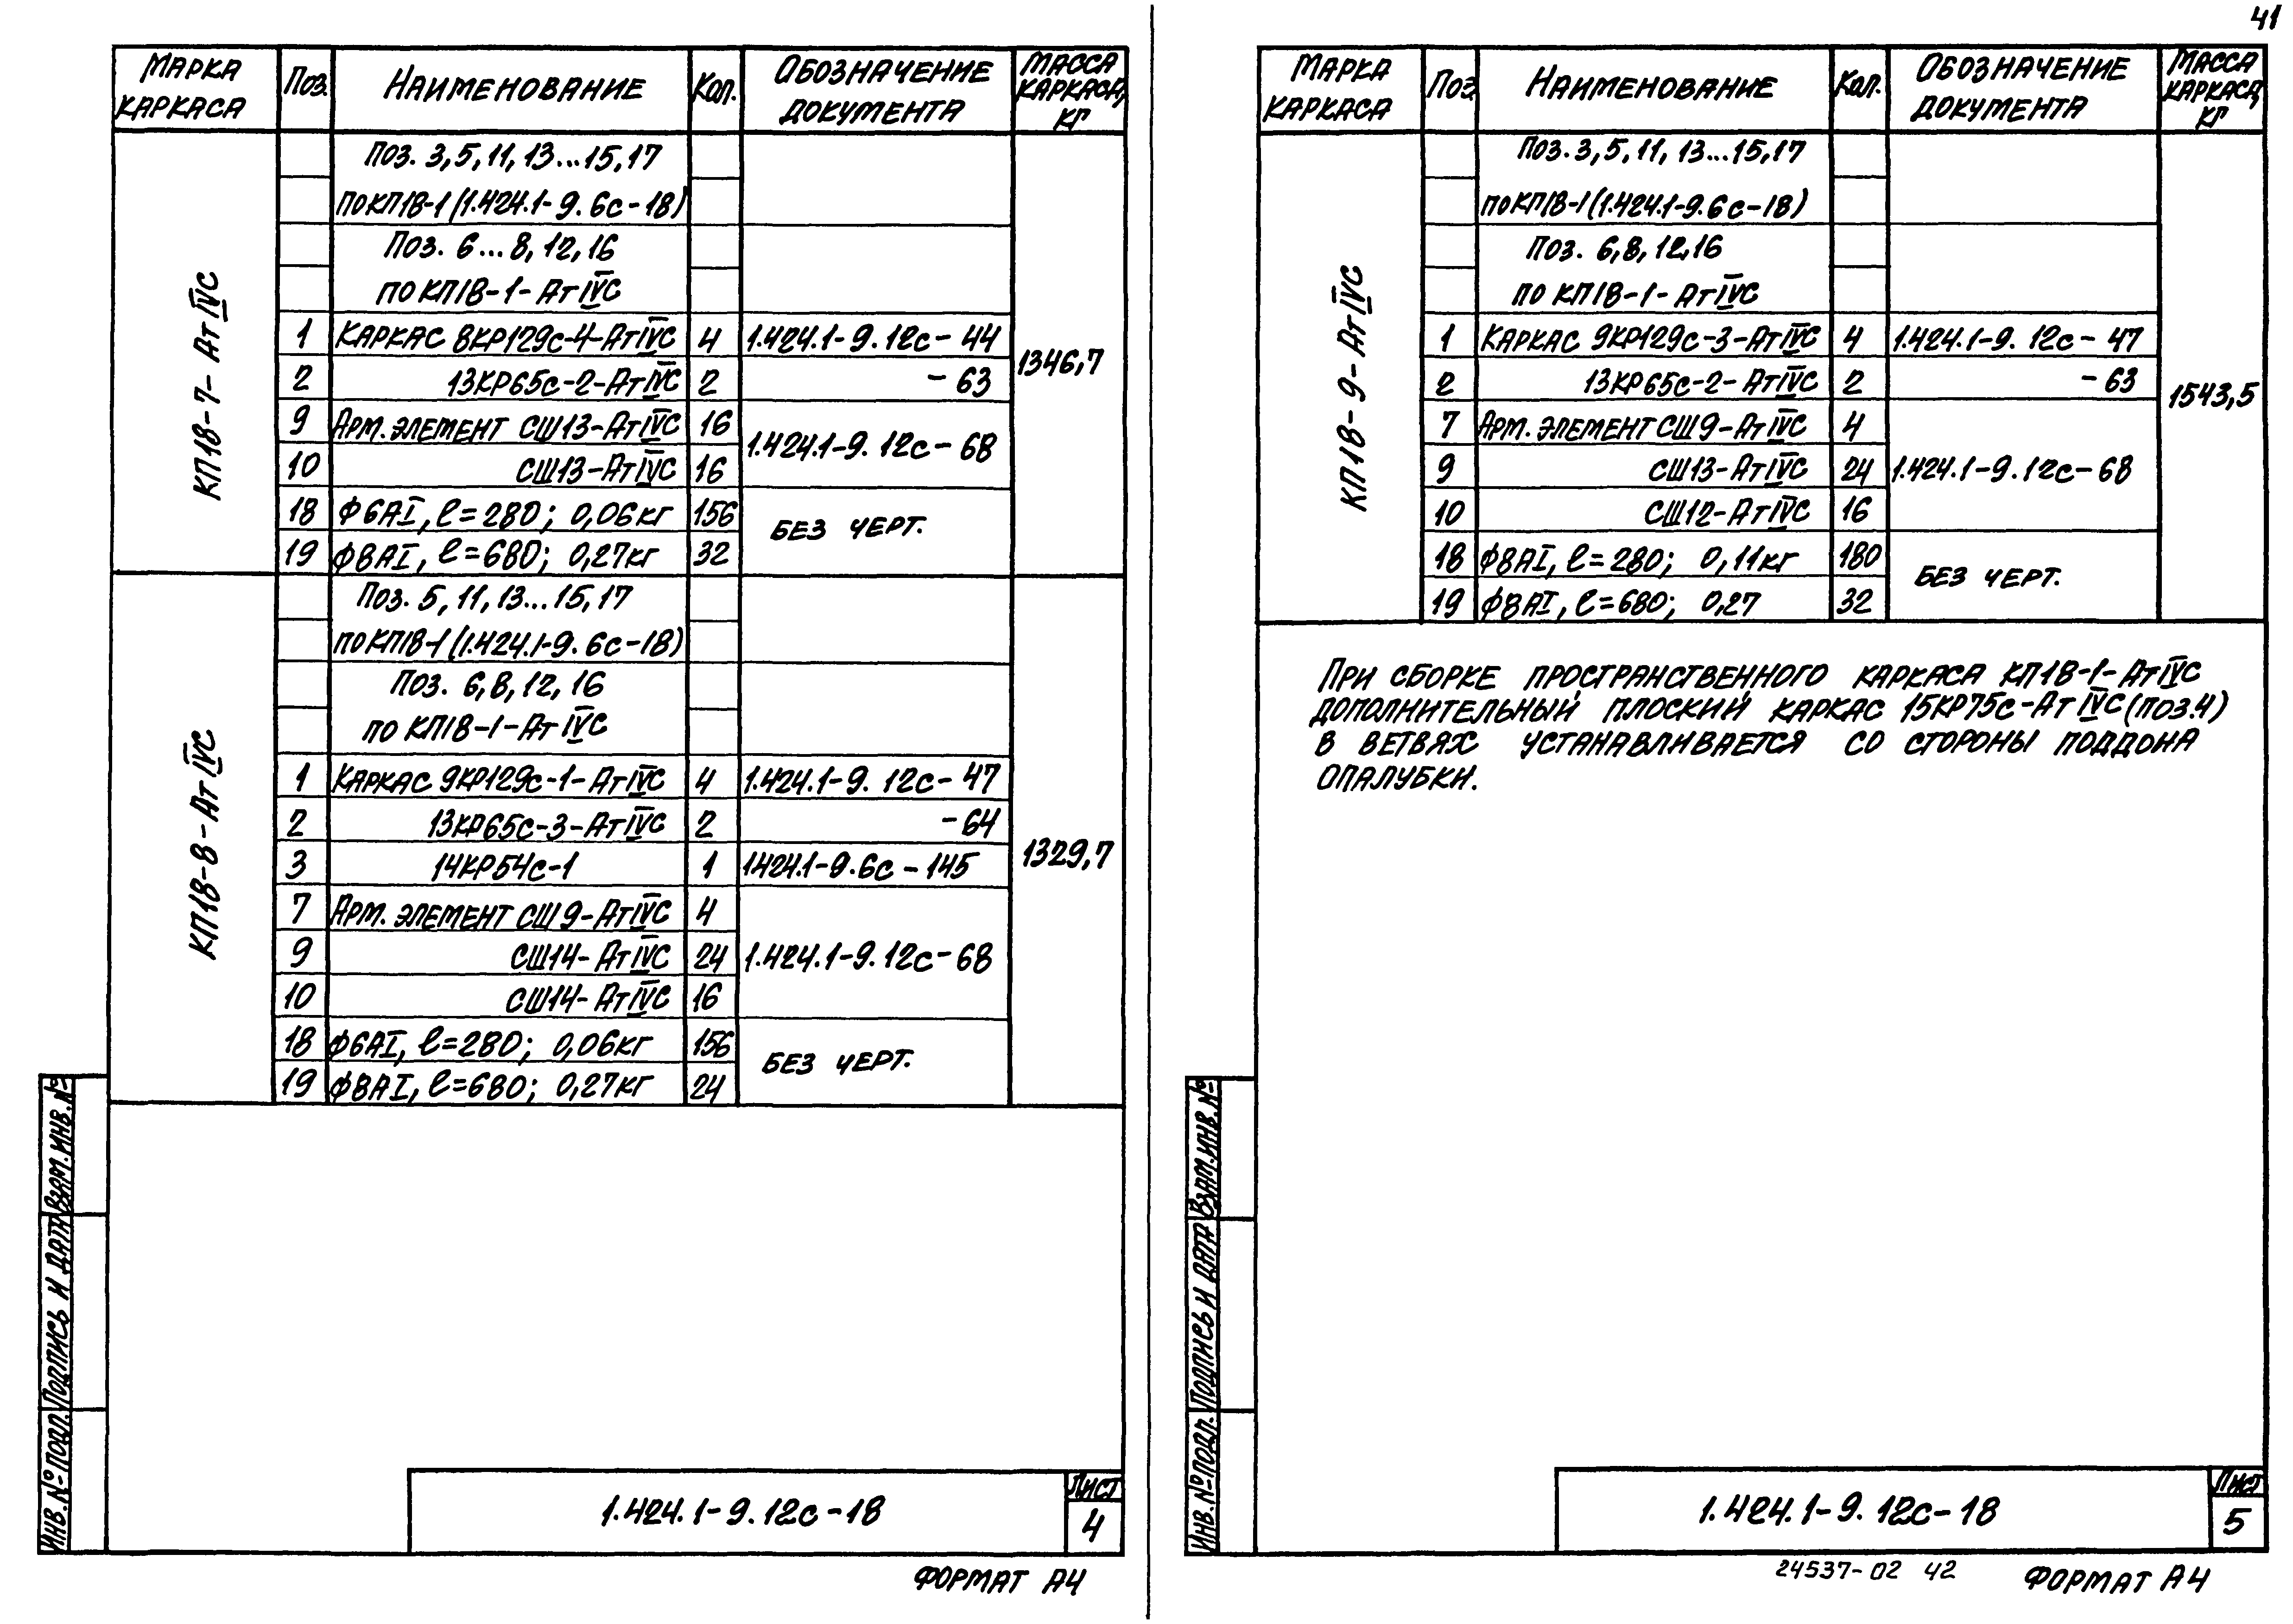 41
МАРКА КАРКАСА
ПОЗ.
НАИМЕНОВАНИЕ
КОЛ.
ОБОЗНАЧЕНИЕ ДОКУМЕНТА
МАССА КАРКАСА, КГ
КП18-7-АтIVС
ПОЗ. 3, 5, 11, 13...15, 17
ПО КП18-1 (1.424.1-9.6с-18)
ПОЗ. 6...8, 12, 16
ПО КП18-1-АтIVС
1 КАРКАС 8КР129с-4-АтIVС 4 1.424.1-9.12с-44
1346,7
2 13КР65с-2-АтIVС 2 -63
9 АРМ. ЭЛЕМЕНТ СШ13-АтIVС 16
1.424.1-9.12с-68
10 СШ13-АтIVС 16
18 Ф6АI, ℓ=280; 0,06кг 156
БЕЗ ЧЕРТ.
19 Ф8АI, ℓ=680; 0,27кг 32
КП18-8-АтIVС
ПОЗ. 5, 11, 13...15, 17
ПО КП18-1 (1.424.1-9.6с-18)
ПОЗ. 6, 8, 12, 16
ПО КП18-1-АтIVС
1 КАРКАС 9КР129с-1-АтIVС 4 1.424.1-9.12с-47
2 13КР65с-3-АтIVС 2 -64
1329,7
3 14КР54с-1 1 1424.1-9.6с-145
7 АРМ. ЭЛЕМЕНТ СШ9-АтIVС 4
9 СШ14-АтIVС 24 1.424.1-9.12с-68
10 СШ14-АтIVС 16
18 Ф6АI, ℓ=280; 0,06кг 156
БЕЗ ЧЕРТ.
19 Ф8АI, ℓ=680; 0,27кг 24
ИНВ.№ПОДЛ. ПОДПИСЬ И ДАТА ВЗАМ.ИНВ.№
1.424.1-9.12с-18
ЛИСТ
4
ФОРМАТ А4
МАРКА КАРКАСА
ПОЗ
НАИМЕНОВАНИЕ
КОЛ.
ОБОЗНАЧЕНИЕ ДОКУМЕНТА
МАССА КАРКАСА, КГ
КП18-9-АтIVС
ПОЗ. 3, 5, 11, 13...15, 17
ПО КП18-1 (1.424.1-9.6с-18)
ПОЗ. 6, 8, 12, 16
ПО КП18-1-АтIVС
1 КАРКАС 9КР129с-3-АтIVС 4 1.424.1-9.12с-47
2 13КР65с-2-АтIVС 2 -63
1543,5
7 АРМ. ЭЛЕМЕНТ СШ9-АтIVС 4
9 СШ13-АтIVС 24 1.424.1-9.12с-68
10 СШ12-АтIVС 16
18 Ф8АI, ℓ=280; 0,11кг 180
БЕЗ ЧЕРТ.
19 Ф8АI, ℓ=680; 0,27 32
ПРИ СБОРКЕ ПРОСТРАНСТВЕННОГО КАРКАСА КП18-1-АтIVС
ДОПОЛНИТЕЛЬНЫЙ ПЛОСКИЙ КАРКАС 15КР75с-АтIVС (ПОЗ.4)
В ВЕТВЯХ УСТАНАВЛИВАЕТСЯ СО СТОРОНЫ ПОДДОНА
ОПАЛУБКИ.
ИНВ.№ПОДЛ. ПОДПИСЬ И ДАТА ВЗАМ.ИНВ.№
1.424.1-9.12с-18
ЛИСТ
5
24537-02 42
ФОРМАТ А4